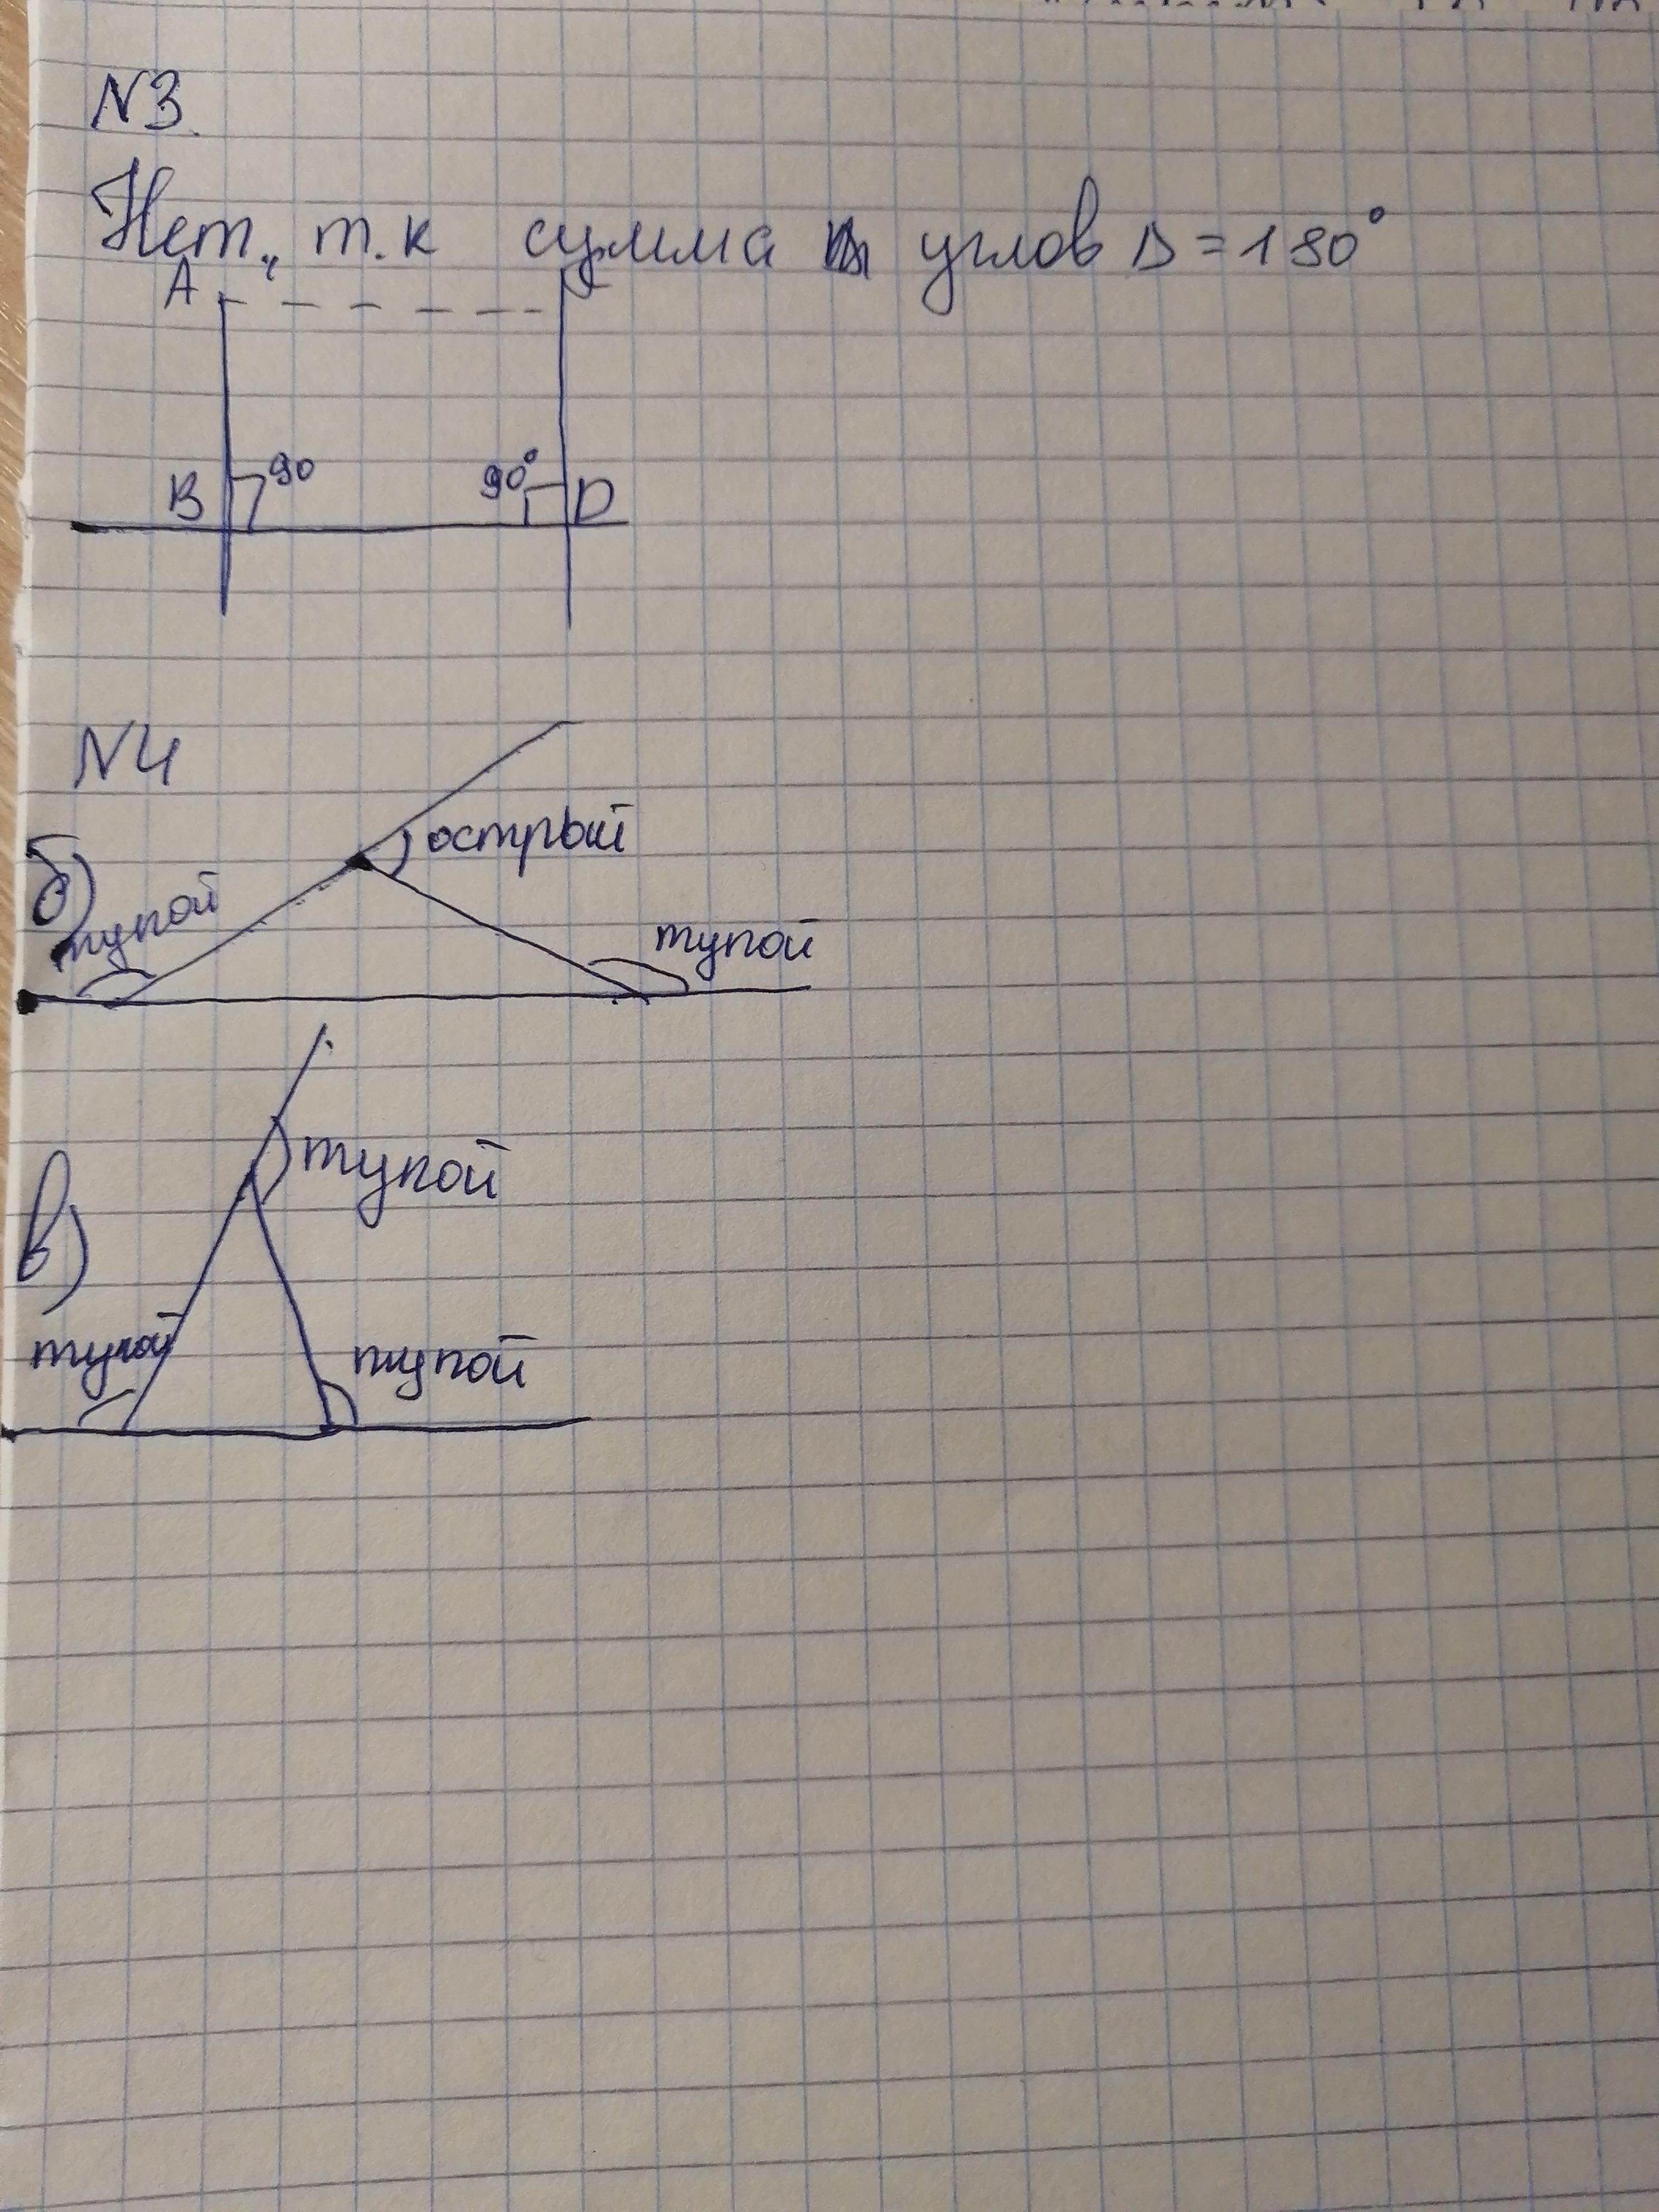 N3.
Нет., т.к сумма углов Δ = 180°
A
B 90 90° D
N4
острый
б)
тупой
тупой
тупой
в)
тупой
тупой